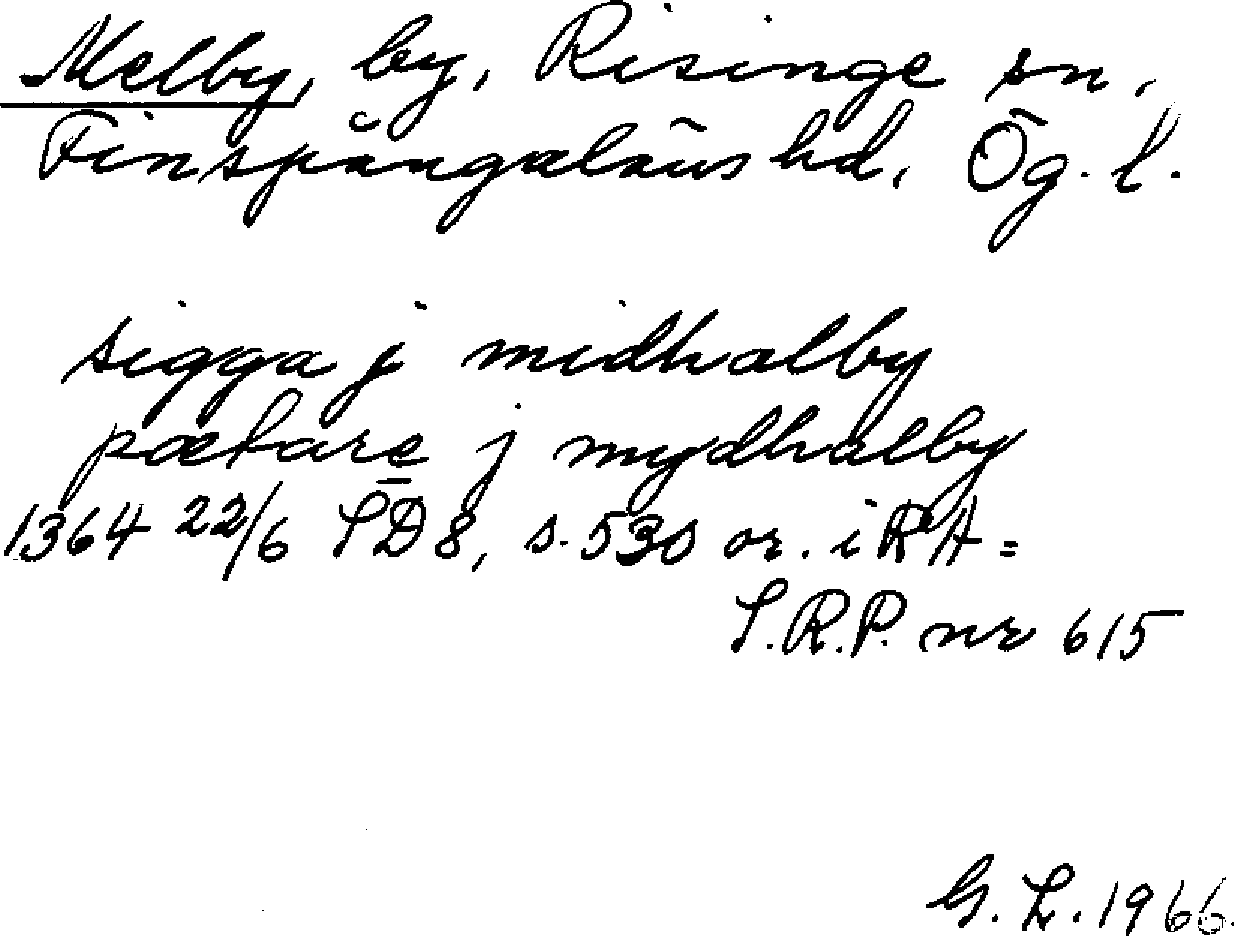 Melby, by, Risinge sn,
Finspångaläns hd, Ög. l.
sigga j midhalby
pætare j mydhalby
1364 22/6 SD 8, s. 530 or. i RA =
S.R.P. nr 615
G. L. 1966.